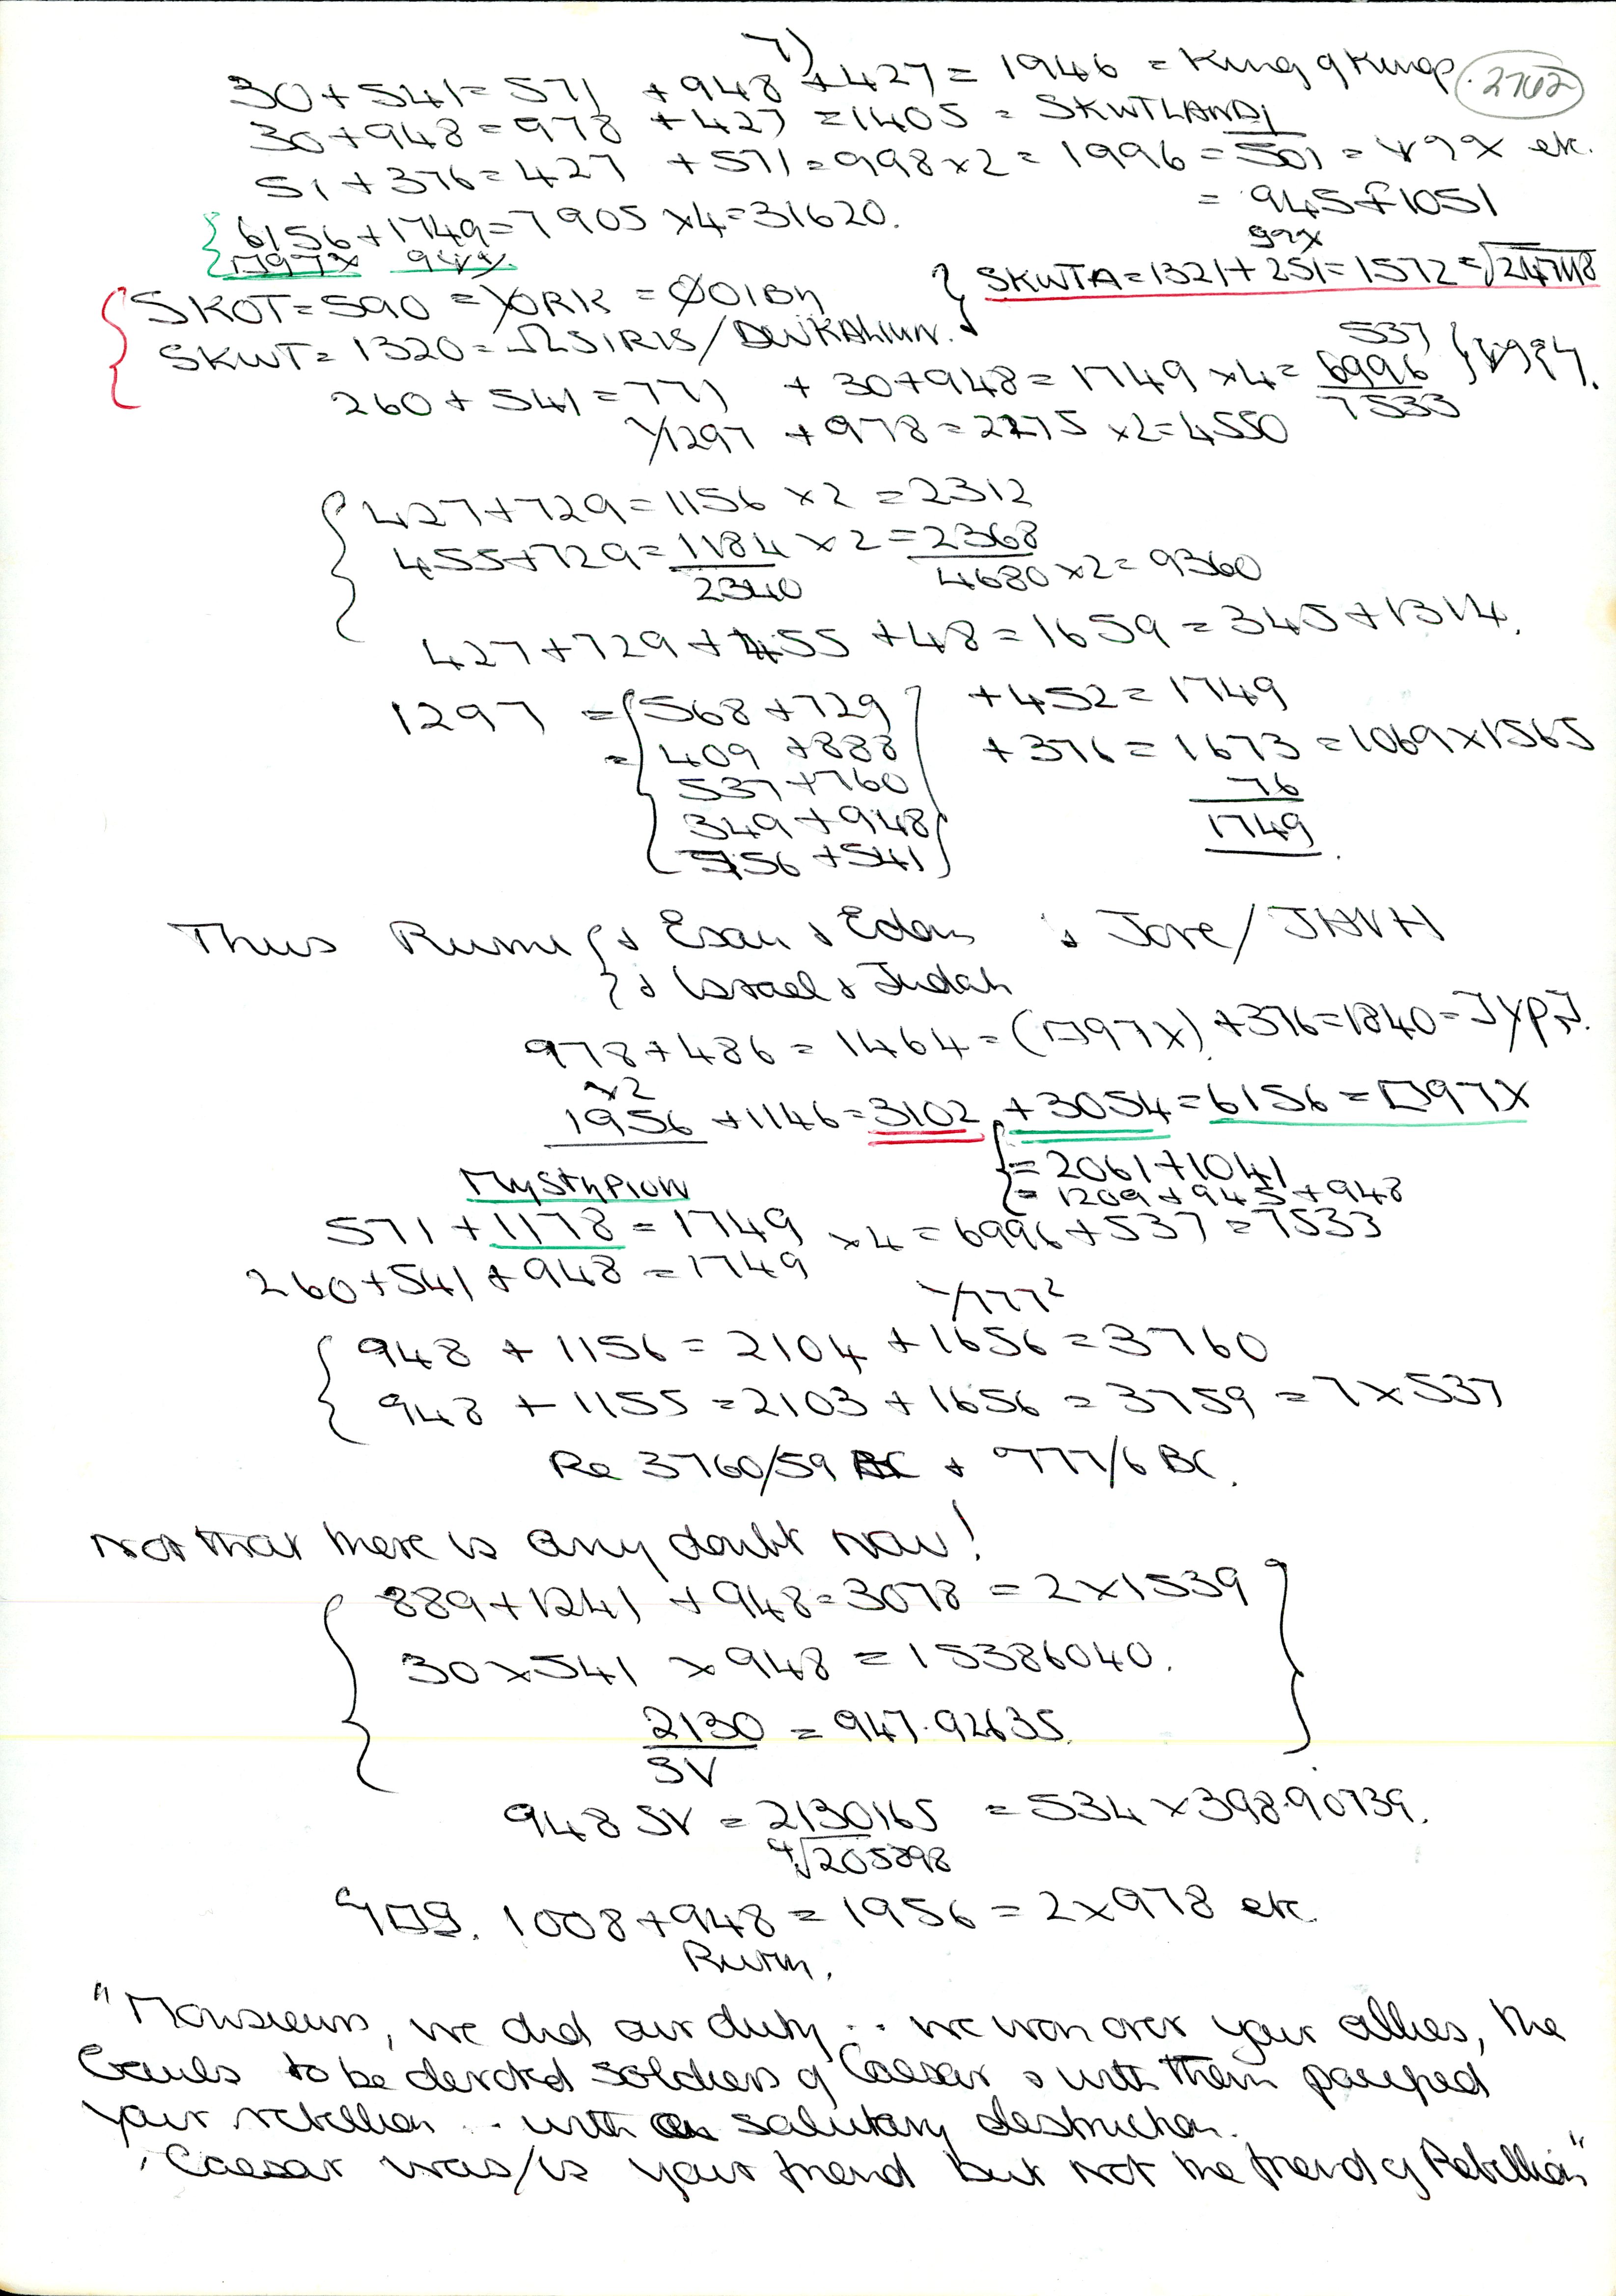 7)
30+541=571 +948 +427= 1946 = King of Kings. 2762
30+948=978 +427 =1405 = SKWTLAND
51+376=427 +571=998×2=1996=501=499X etc.
= 945+1051
6156+1749=7905 ×4=31620.
SKWTA=1321+251=1572=√2471118
SKOT=590 = YORK =
SKWT=1320=ΩSIRIS/DEWKALIWN.
537
260+541=771 +30+948=1749×4=6996
7533
1297 +978=2275 ×2=4550
427+729=1156 ×2 =2312
455+729=1184 ×2=2368
2340 4680×2=9360
427+729+455 +48=1659=345+1314.
1297 = 568+729 +452=1749
= 409 +888 +376=1673=1069×1565
537+760 76
349+948 1749
756+541
Thus Rume & Esau & Edom & Jove/JHVH
& Israel & Judah
978+486=1464= +376=1840=
×2
1956 +1146=3102 +3054=6156=
=2061+1041
MYSTHPION =1209+945+948
571+1178=1749 ×4=6996+537=7533
260+541+948=1749
√777²
948 + 1156=2104 +1656=3760
948 + 1155=2103+1656=3759=7×537
Re 3760/59 BC & 777/6 BC.
Not that there is any doubt now!
889+1241 +948=3078 =2×1539
30×541 ×948 = 15386040.
2130 = 947.92635.
SV
948 SV = 2130165 =534×398.90739.
⁴√205898
1008+948=1956=2×978 etc.
Rwm.
"Monsieurs, we did our duty .. we won over your allies, the
Gauls to be devoted soldiers of Caesar & with them
your rebellion .. with a salutary destruction.
Caesar was/is your friend but not the friend of Rebellion"